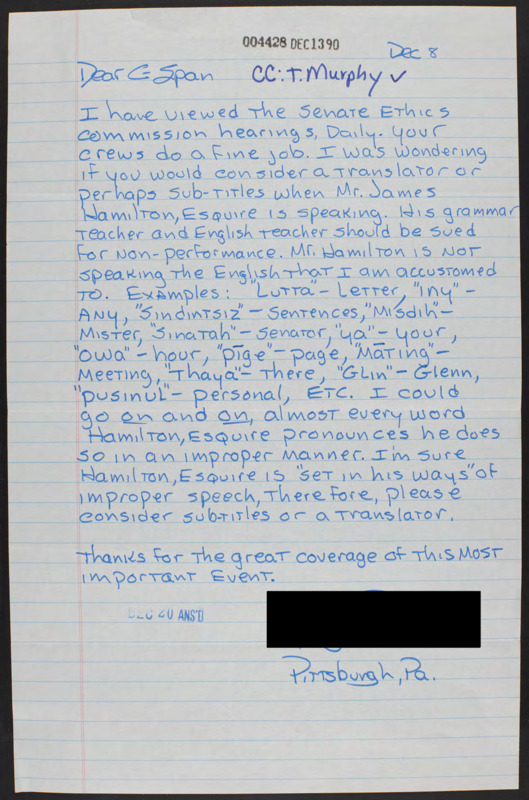 004428 DEC1390
Dec 8
Dear C-Span CC: T. Murphy ✓
I have viewed the Senate Ethics
commission hearings, Daily. your
crews do a fine job. I was wondering
if you would consider a translator or
perhaps sub-titles when Mr. James
Hamilton, Esquire is speaking. His grammar
teacher and English teacher should be sued
for non-performance. Mr. Hamilton is not
speaking the English that I am accustomed
to. Examples: "Lutta" - Letter, "iny" -
Any, "sindintsiz" - sentences, "Misdih" -
Mister, "sinatah" - senator, "ya" - your,
"owa" - hour, "pīge" - page, "Māting" -
Meeting, "Thaya" - There, "Glin" - Glenn,
"pusinul" - personal, ETC. I could
go on and on, almost every word
Hamilton, Esquire pronounces he does
so in an improper manner. I'm sure
Hamilton, Esquire is "set in his ways" of
improper speech, therefore, please
consider subtitles or a translator.
Thanks for the great coverage of this most
important Event.
DEC 20 ANS'D
Pittsburgh, Pa.